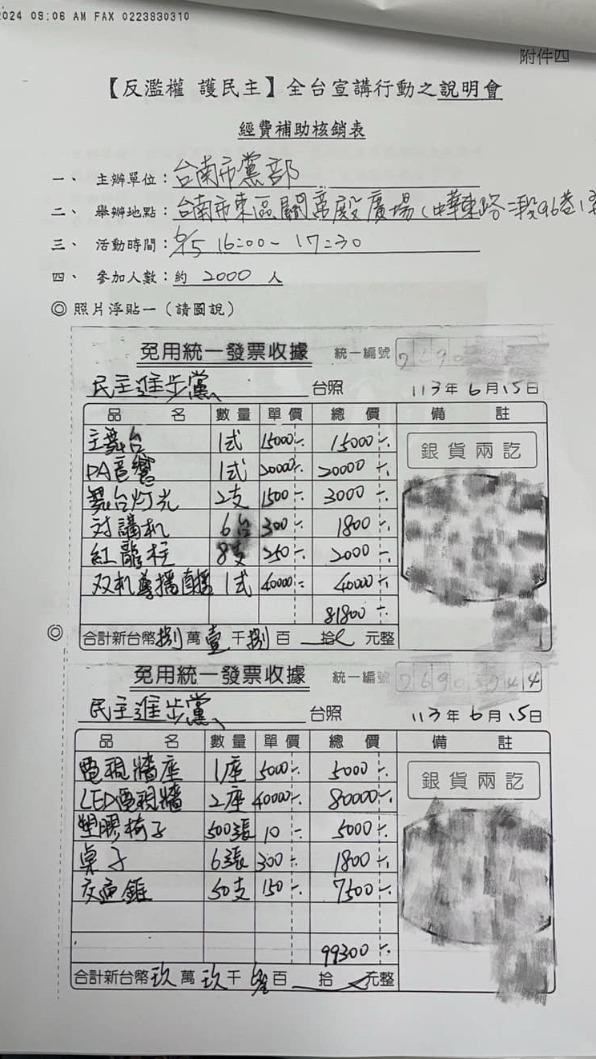 2024 08:06 AM FAX 0223930310
附件四
【反濫權 護民主】全台宣講行動之說明會
經費補助核銷表
一、 主辦單位：台南市黨部
二、 舉辦地點：台南市東區關帝殿廣場（中華東路二段96巷
三、 活動時間：6/15 16:00~17:30
四、 參加人數：約 2000 人
◎ 照片浮貼一（請圖說）
免用統一發票收據 統一編號
民主進步黨 台照 113年6月15日
品名 數量 單價 總價 備註
主舞台 1式 15000 15000
PA音響 1式 20000 20000
舞台灯光 2支 1500 3000
対講机 6台 300 1800
紅龍柱 8支 250 2000
双机導播直播 1式 40000 40000
81800
銀貨兩訖
合計新台幣捌萬壹千捌百 拾 元整
◎
免用統一發票收據 統一編號
民主進步黨 台照 113年6月15日
品名 數量 單價 總價 備註
電視牆座 1座 5000 5000
LED電視牆 2座 40000 80000
塑膠椅子 500張 10 5000
桌子 6張 300 1800
交通錐 50支 150 7500
99300
銀貨兩訖
合計新台幣玖萬玖千參百 拾 元整